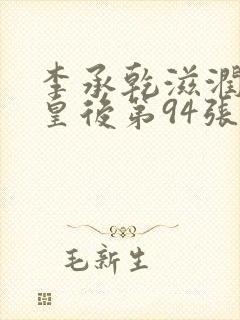 李承乾滋潤
皇後第94張
毛新生